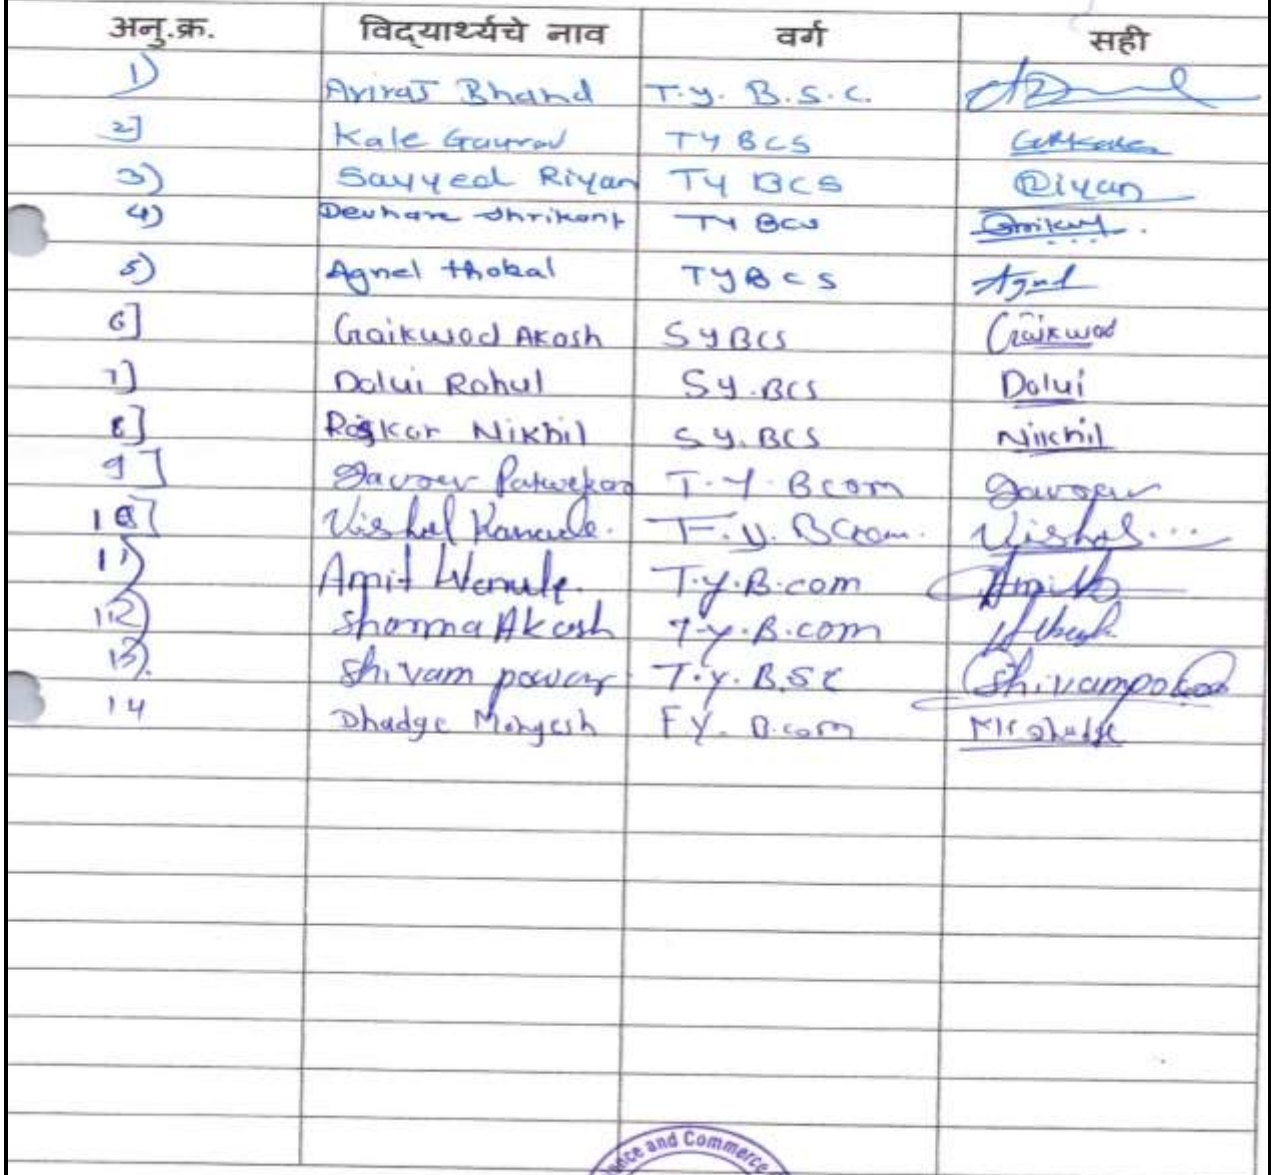 अनु.क्र. विद्यार्थ्यचे नाव वर्ग सही
1) Aviraj Bhand T.y. B.S.C.
2] Kale Gaurav TY BCS
3) Sayyed Riyan TY BCS Riyan
4) Devhare Shrikant TY BCS
5) Agnel thokal TYBCS Agnel
6] Gaikwad Akash SYBCS Gaikwad
7] Dalui Rahul SY.BCS Dalui
8] Raskar Nikhil SY.BCS Nikhil
9] T.Y.Bcom
10] Vishal Kanade. F.y. BCom. Vishal...
11) Amit T.y.B.com Amit
12) Sharma Akash T.y.B.com Akash
13). Shivam powar T.y.B.SC Shivampowar
14 Dhadge Mangesh FY. B.com
nce and Commerce